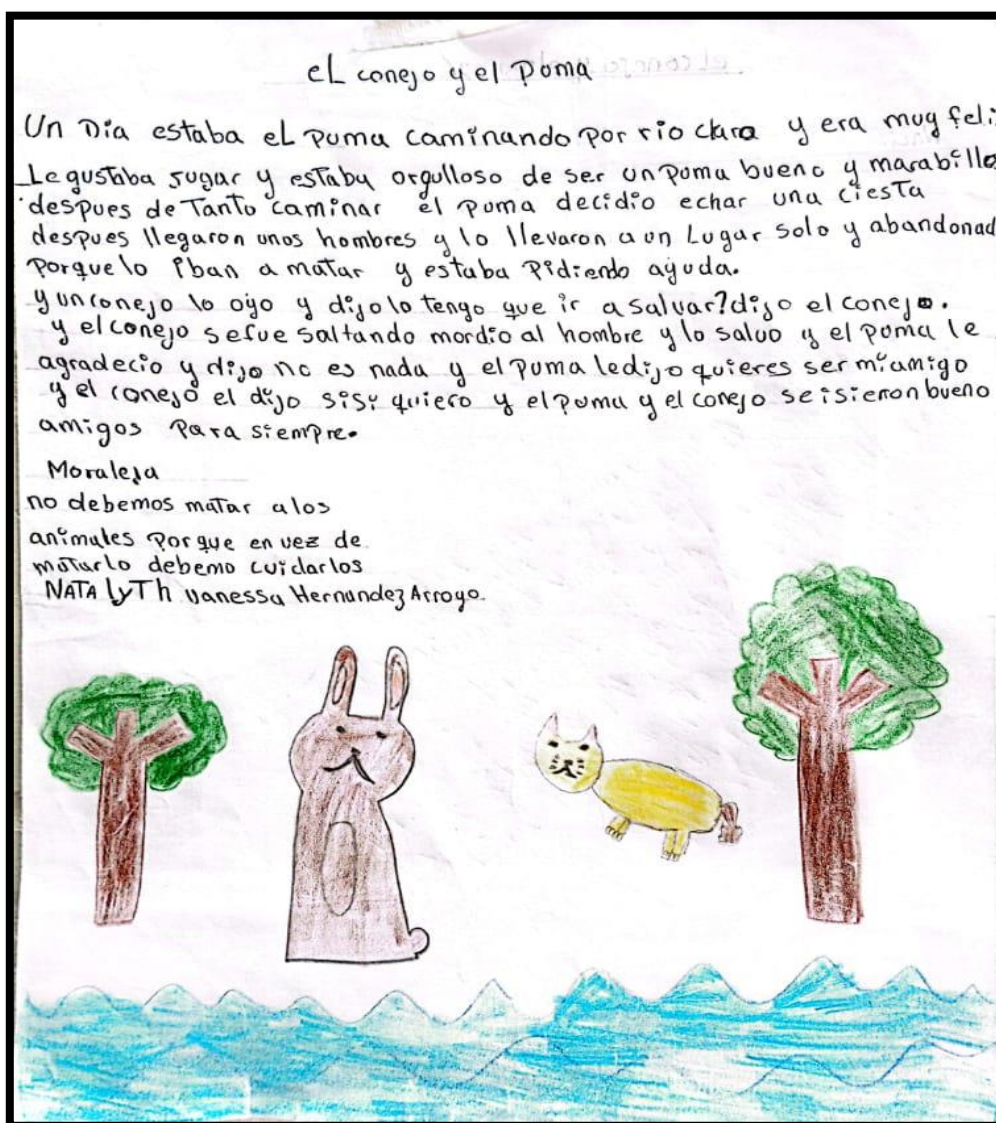 eL conejo y el Puma
Un Dia estaba eL Puma caminando por rio claro y era muy feli
Le gustaba jugar y estaba orgulloso de ser un puma bueno y marabillo
despues de Tanto caminar el puma decidio echar una ciesta
despues llegaron unos hombres y lo llevaron a un Lugar solo y abandonad
Porque lo iban a matar y estaba Pidiendo ayuda.
y un conejo lo oyo y dijo lo tengo que ir a salvar? dijo el conejo.
y el conejo se fue saltando mordio al hombre y lo salvo y el puma le
agradecio y dijo no es nada y el puma le dijo quieres ser mi amigo
y el conejo el dijo si si quiero y el puma y el conejo se isieron bueno
amigos Para siempre.
Moraleja
no debemos matar a los
animales Por que en vez de
matarlo debemo cuidarlos
NATALyTh vanessa Hernandez Arroyo.